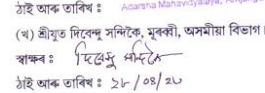 ঠাই আৰু তাৰিখ : Adarsha Mahavidyalaya,
(খ) শ্ৰীযুত দিবেন্দু সন্দিকৈ, মুৰব্বী, অসমীয়া বিভাগ।
স্বাক্ষৰ : দিবেন্দু সন্দিকৈ
ঠাই আৰু তাৰিখ : ২৮/০৪/২০